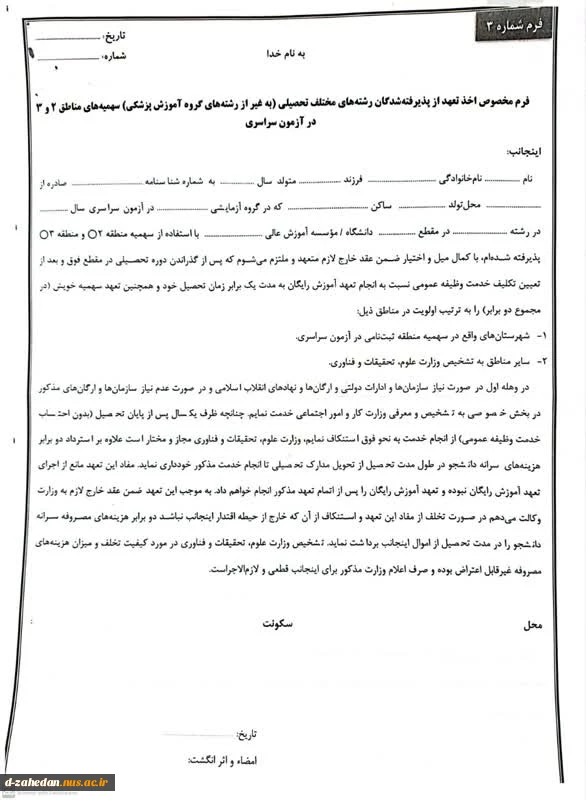 فرم شماره ۳
تاریخ: ....................
شماره: ....................
به نام خدا
فرم مخصوص اخذ تعهد از پذیرفته‌شدگان رشته‌های مختلف تحصیلی (به غیر از رشته‌های گروه آموزش پزشکی) سهمیه‌های مناطق ۲ و ۳
در آزمون سراسری
اینجانب:
نام .............. نام‌خانوادگی .................... فرزند .................... متولد سال .............. به شماره شناسنامه .................... صادره از
.................... محل‌تولد .................... ساکن .................... که در گروه آزمایشی .................... در آزمون سراسری سال ..............
در رشته .................... در مقطع .............. دانشگاه / مؤسسه آموزش عالی .................... با استفاده از سهمیه منطقه ۲○ و منطقه ۳○
پذیرفته شده‌ام، با کمال میل و اختیار ضمن عقد خارج لازم متعهد و ملتزم می‌شوم که پس از گذراندن دوره تحصیلی در مقطع فوق و بعد از
تعیین تکلیف خدمت وظیفه عمومی نسبت به انجام تعهد آموزش رایگان به مدت یک برابر زمان تحصیل خود و همچنین تعهد سهمیه خویش (در
مجموع دو برابر) را به ترتیب اولویت در مناطق ذیل:
۱- شهرستان‌های واقع در سهمیه منطقه ثبت‌نامی در آزمون سراسری.
۲- سایر مناطق به تشخیص وزارت علوم، تحقیقات و فناوری.
در وهله اول در صورت نیاز سازمان‌ها و ادارات دولتی و ارگان‌ها و نهادهای انقلاب اسلامی و در صورت عدم نیاز سازمان‌ها و ارگان‌های مذکور
در بخش خصوصی به تشخیص و معرفی وزارت کار و امور اجتماعی خدمت نمایم. چنانچه ظرف یکسال پس از پایان تحصیل (بدون احتساب
خدمت وظیفه عمومی) از انجام خدمت به نحو فوق استنکاف نمایم، وزارت علوم، تحقیقات و فناوری مجاز و مختار است علاوه بر استرداد دو برابر
هزینه‌های سرانه دانشجو در طول مدت تحصیل از تحویل مدارک تحصیلی تا انجام خدمت مذکور خودداری نماید. مفاد این تعهد مانع از اجرای
تعهد آموزش رایگان نبوده و تعهد آموزش رایگان را پس از اتمام تعهد مذکور انجام خواهم داد. به موجب این تعهد ضمن عقد خارج لازم به وزارت
وکالت می‌دهم در صورت تخلف از مفاد این تعهد و استنکاف از آن که خارج از حیطه اقتدار اینجانب نباشد دو برابر هزینه‌های مصروفه سرانه
دانشجو را در مدت تحصیل از اموال اینجانب برداشت نماید. تشخیص وزارت علوم، تحقیقات و فناوری در مورد کیفیت تخلف و میزان هزینه‌های
مصروفه غیرقابل اعتراض بوده و صرف اعلام وزارت مذکور برای اینجانب قطعی و لازم‌الاجراست.
محل سکونت
تاریخ: ....................
امضاء و اثر انگشت:
d-zahedan.nus.ac.ir